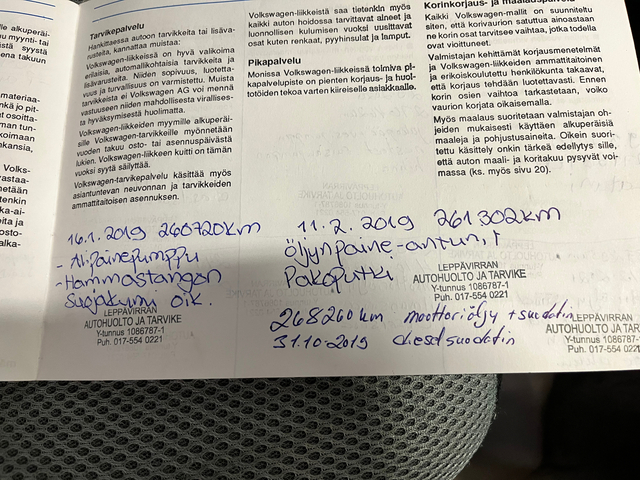 Tarvikepalvelu
Hankittaessa autoon tarvikkeita tai lisäva-
rusteita, kannattaa muistaa:
Volkswagen-liikkeissä on hyvä valikoima
erilaisia, automallikohtaisia tarvikkeita ja
lisävarusteita. Niiden sopivuus, luotetta-
vuus ja turvallisuus on varmistettu. Muista
tarvikkeista ei Volkswagen AG voi mennä
vastuuseen niiden mahdollisesta virallises-
ta hyväksymisestä huolimatta.
Volkswagen-liikkeiden myymille alkuperäi-
sille Volkswagen-tarvikkeille myönnetään
vuoden takuu osto- tai asennuspäivästä
lukien. Volkswagen-liikkeen kuitti on tämän
vuoksi syytä säilyttää.
Volkswagen-tarvikepalvelu käsittää myös
asiantuntevan neuvonnan ja tarvikkeiden
ammattitaitoisen asennuksen.
Volkswagen-liikkeissä saa tietenkin myös
kaikki auton hoidossa tarvittavat aineet ja
luonnollisen kulumisen vuoksi uusittavat
osat kuten renkaat, pyyhinsulat ja lamput.
Pikapalvelu
Monissa Volkswagen-liikkeissä toimiva pi-
kapalvelupiste on pienten korjaus- ja huol-
totöiden tekoa varten kiireiselle asiakkaalle.
Korinkorjaus- ja maalauspalvelu
Kaikki Volkswagen-mallit on suunniteltu
siten, että korivaurion satuttua ainoastaan
ne korin osat tarvitsee vaihtaa, jotka todella
ovat vioittuneet.
Valmistajan kehittämät korjausmenetelmät
ja Volkswagen-liikkeiden ammattitaitoinen
ja erikoiskoulutettu henkilökunta takaavat,
että korjaus tehdään luotettavasti. Ennen
korin osien vaihtoa tarkastetaan, voiko
vaurion korjata oikaisemalla.
Myös maalaus suoritetaan valmistajan oh-
jeiden mukaisesti käyttäen alkuperäisiä
maaleja ja pohjustusaineita. Oikein suori-
tettu käsittely onkin tärkeä edellytys sille,
että auton maali- ja koritakuu pysyvät voi-
massa (ks. myös sivu 20).
16.1.2019 260720km
- Alipainepumppu
- Hammastangon
Suojakumi oik.
LEPPÄVIRRAN
AUTOHUOLTO JA TARVIKE
Y-tunnus 1086787-1
Puh. 017-554 0221
11.2.2019 261302km
öljynpaine-anturi,
Pakoputki
LEPPÄVIRRAN
AUTOHUOLTO JA TARVIKE
Y-tunnus 1086787-1
Puh. 017-554 0221
268260km moottoriöljy + suodatin
31.10-2019 dieselsuodatin
LEPPÄVIRRAN
AUTOHUOLTO JA TARVIKE
Y-tunnus 1086787-1
Puh. 017-554 0221